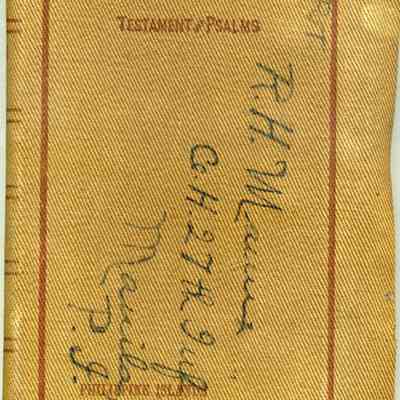 TESTAMENT and PSALMS
R.H. Manus
Co H. 27th Inf
Manila
P.I.
PHILIPPINE ISLANDS